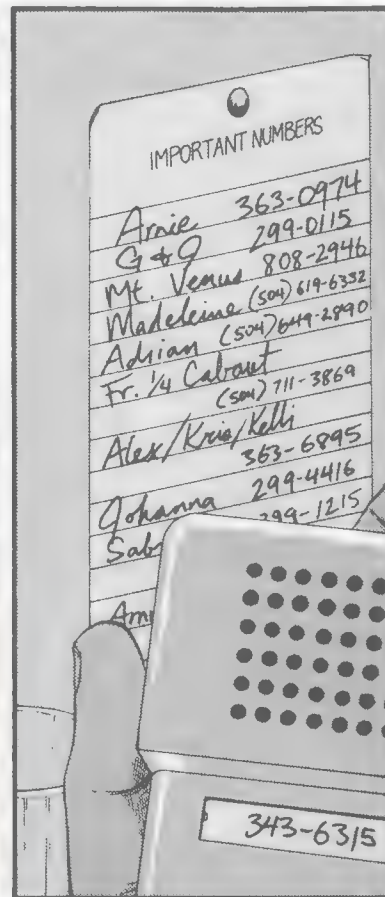 IMPORTANT NUMBERS
Arnie 363-0974
G & J 299-0115
Mt. Venus 808-2946
Madeleine (504) 619-6332
Adrian (504) 649-2890
Fr. 1/4 Cabaret
(504) 711-3869
Alex/Kris/Kelli
363-6895
Johanna 299-4416
Sab 299-1215
Am
343-6315